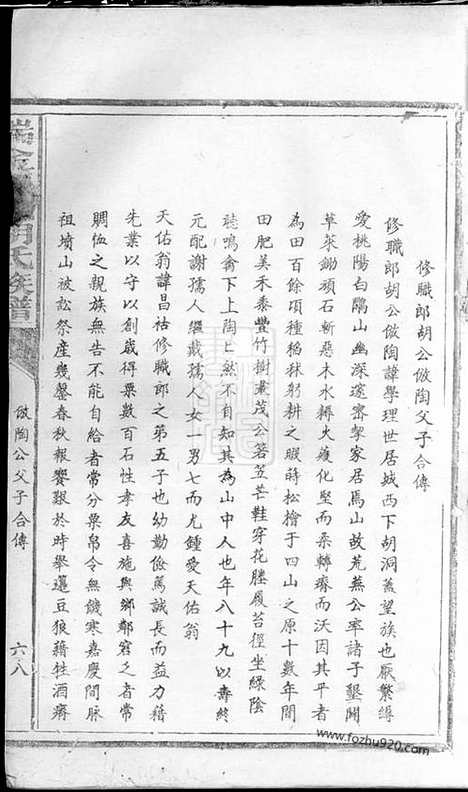 修職郎胡公倣陶父子合傳
修職郎胡公倣陶諱學理世居城西下胡洞蓋望族也厭繁縟
愛桃陽白鵰山幽深邃密挈家居焉山故荒蕪公率諸子墾闢
草萊鋤頑石斬惡木水耨火穫化堅而柔轉瘠而沃因其平者
為田百餘頃種稻秫躬耕之暇蒔松檜于四山之原十數年間
田肥美禾黍豐竹樹叢茂公箬笠芒鞋穿花塍履苔徑坐綠陰
聽鳴禽下上陶亡然不自知其為山中人也年八十九以壽終
元配謝孺人繼戴孺人女一男七而尤鍾愛天佑翁
天佑翁諱昌祜修職郎之第五子也幼勤儉篤誠長而益力藉
先業以守以創歲得粟數百石性孝友喜施與鄉鄰窘之者常
賙恤之親族無告不能自給者常分粟帛令無饑寒嘉慶間脉
祖墳山被訟祭產幾罄春秋報饗艱於時舉籩豆狼藉牲酒瘠
倣陶公父子合傳
六八
胡氏族譜
www.fozhu920.com